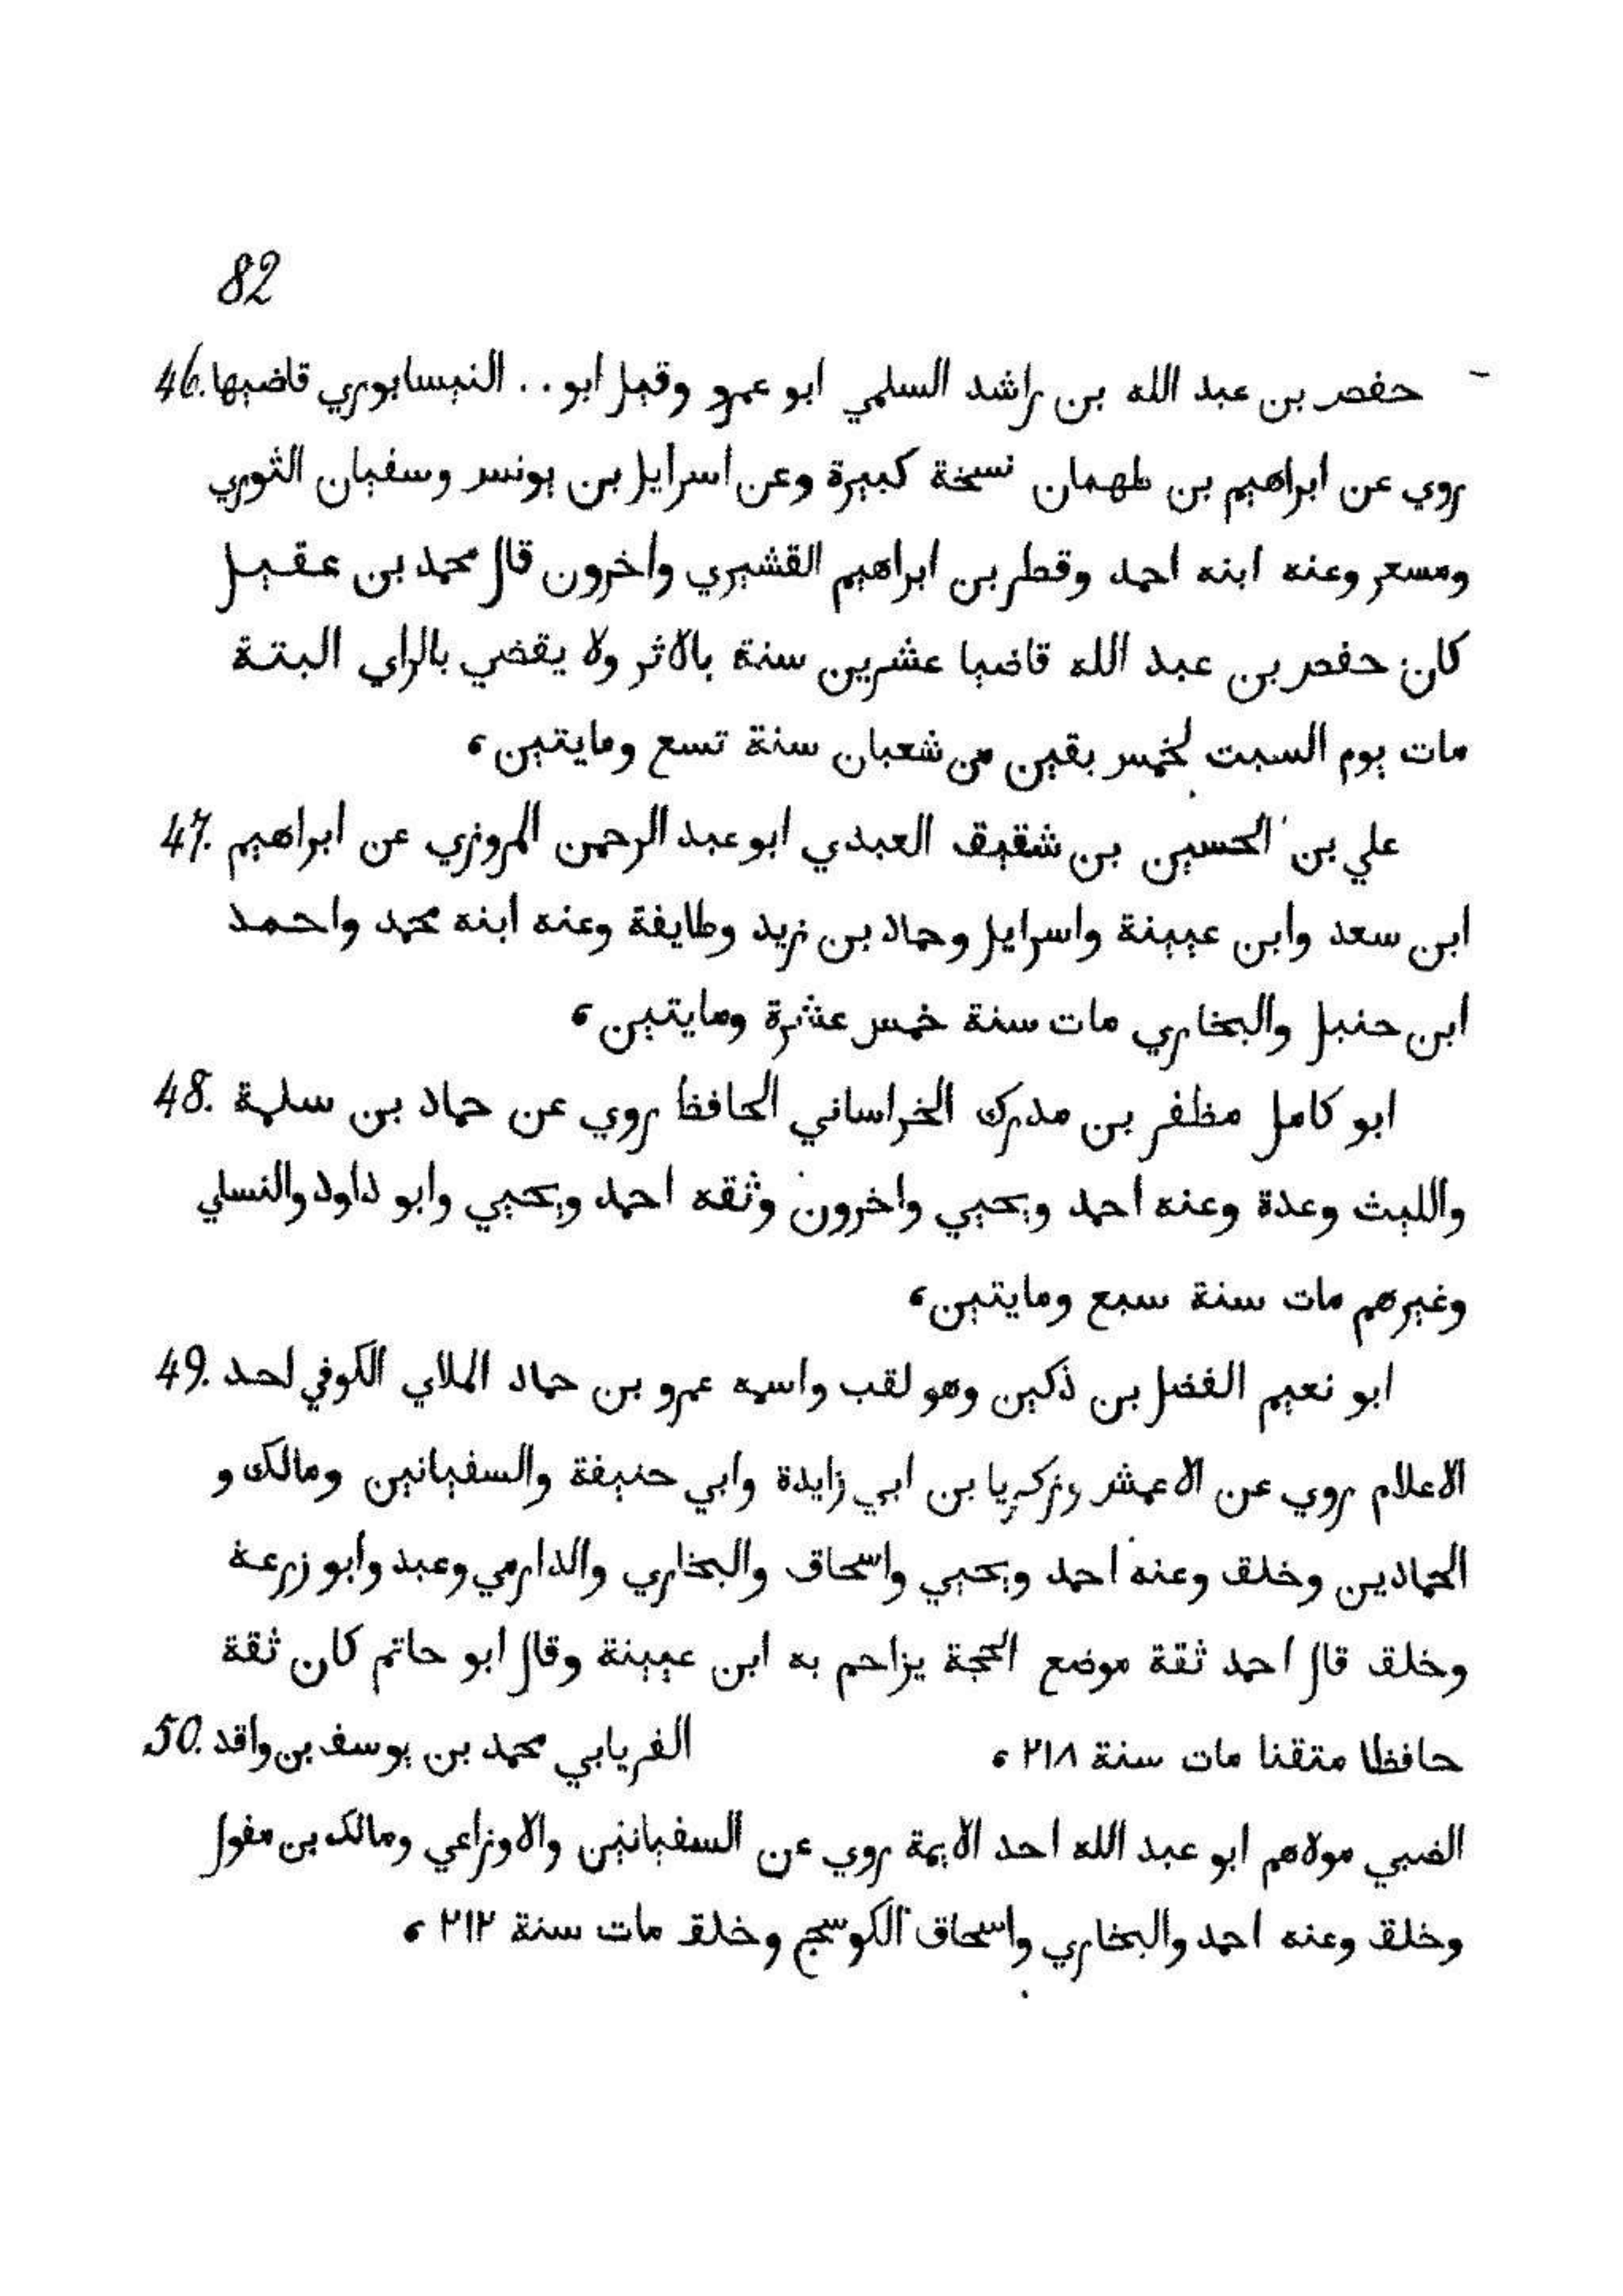 82
حفص بن عبد الله بن راشد السلمي ابو عمرو وقيل ابو .. النيسابوري قاضيها .46
روي عن ابراهيم بن طهمان نسخة كبيرة وعن اسرايل بن يونس وسفيان الثوري
ومسعر وعنه ابنه احمد وقطر بن ابراهيم القشيري واخرون قال محمد بن عقيل
كان حفص بن عبد الله قاضيا عشرين سنة بالاثر ولا يقضي بالراي البتة
مات يوم السبت لخمس بقين من شعبان سنة تسع ومايتين ،
علي بن الحسين بن شقيق العبدي ابو عبد الرحمن المروزي عن ابراهيم .47
ابن سعد وابن عيينة واسرايل وحماد بن زيد وطايفة وعنه ابنه محمد واحمد
ابن حنبل والبخاري مات سنة خمس عشرة ومايتين ،
ابو كامل مظفر بن مدرك الخراساني الحافظ روي عن حماد بن سلمة .48
والليث وعدة وعنه احمد ويحيي واخرون وثقه احمد ويحيي وابو داود والنسلي
وغيرهم مات سنة سبع ومايتين ،
ابو نعيم الفضل بن ذكين وهو لقب واسمه عمرو بن حماد الملاي الكوفي احد .49
الاعلام روي عن الاعمش وزكريا بن ابي زايدة وابي حنيفة والسفيانين ومالك و
الحمادين وخلق وعنه احمد ويحيي واسحاق والبخاري والدارمي وعبد وابو زرعة
وخلق قال احمد ثقة موضع الحجة يزاحم به ابن عيينة وقال ابو حاتم كان ثقة
حافظا متقنا مات سنة ٢١٨ ، الفريابي محمد بن يوسف بن واقد .50
الضبي مولاهم ابو عبد الله احد الايمة روي عن السفيانين والاوزاعي ومالك بن مفول
وخلق وعنه احمد والبخاري واسحاق الكوسج وخلق مات سنة ٢١٢ ،